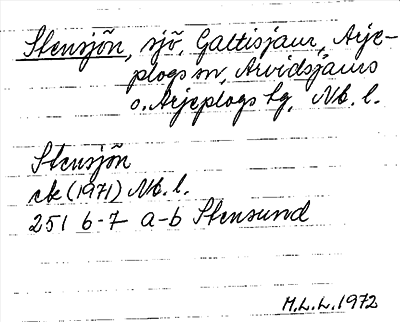 Stensjön, sjö, Galtisjaur, Arje-
plogs sn, Arvidsjaurs
o. Arjeplogs tg, Nb. l.
Stensjön
ek (1971) Nb. l.
251 6-7 a-b Stensund
M.L.L. 1972